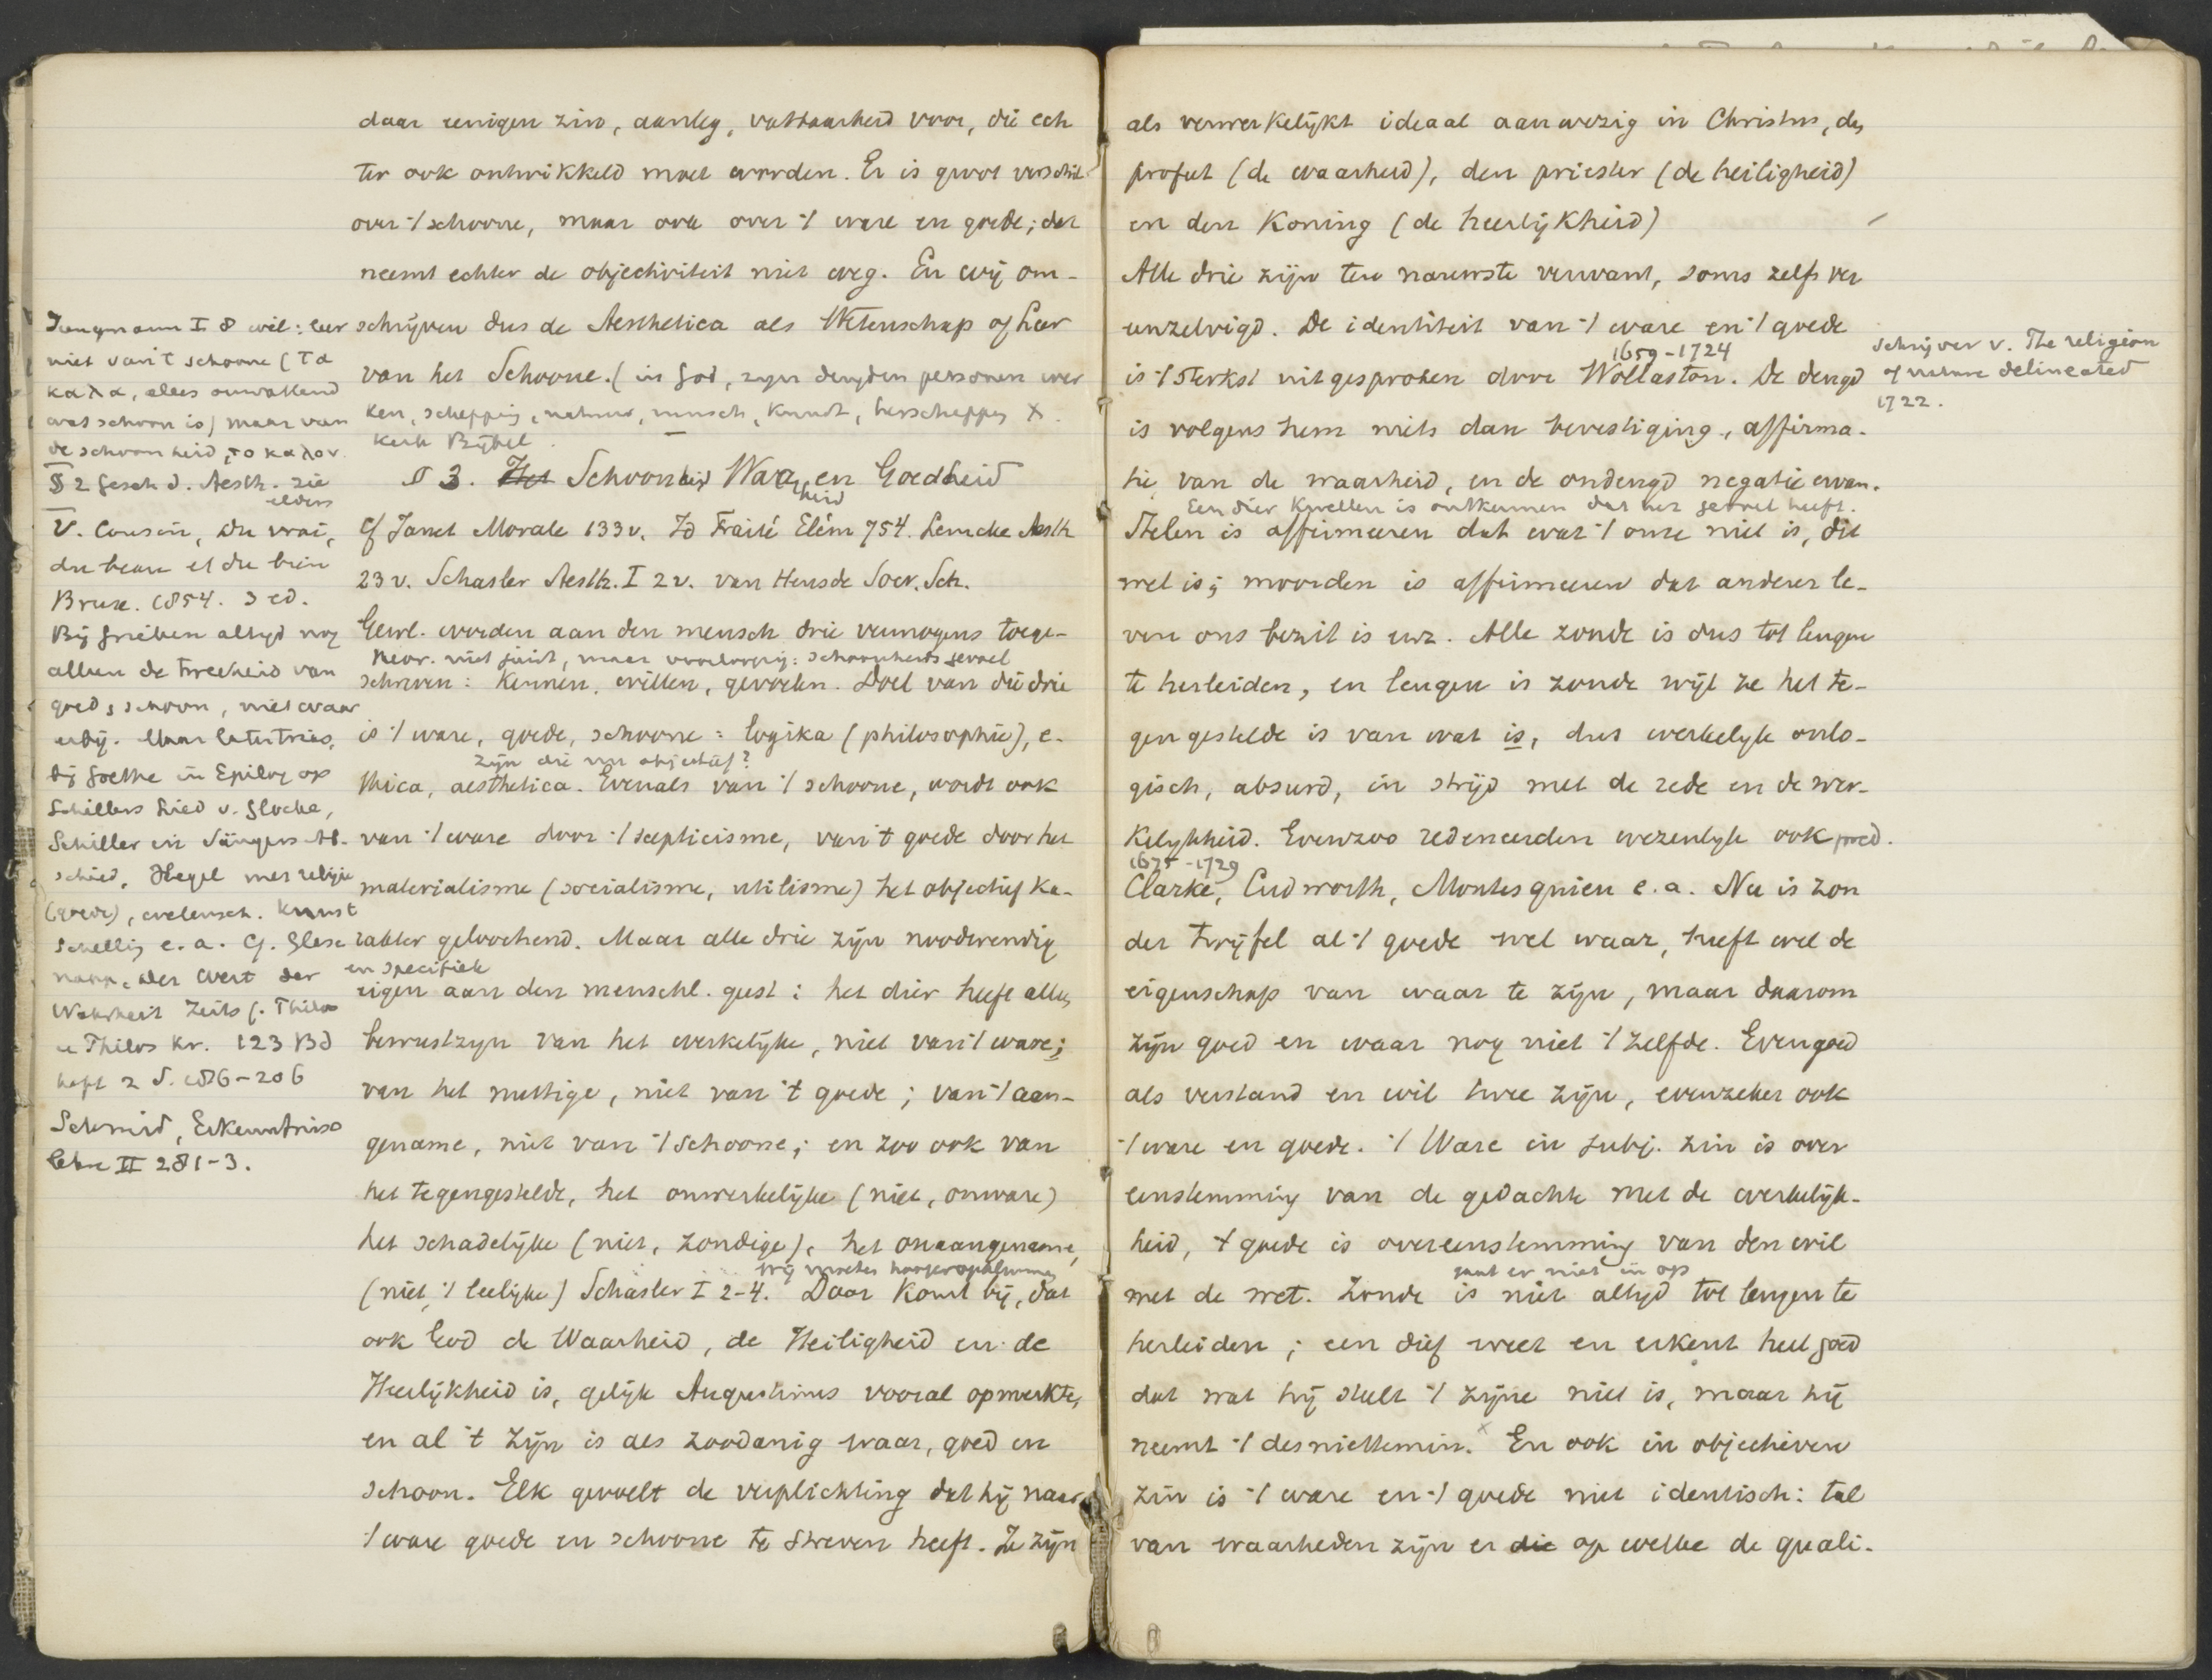 daar eenigen zin, aanleg, vatbaarheid voor, die ech
ter ook ontwikkeld moet worden. Er is groot verschil
over 't schoone, maar ook over 't ware en goede; dat
neemt echter de objectiviteit niet weg. En wij om-
schrijven dus de Aesthetica als Wetenschap of Leer
van het Schoone. (in God, zijn deugden personen wer
ken, schepping, natuur, mensch, kunst, herschepping X.
kerk Bijbel.
§ 3. Het Schoonheid Waarheid en Goedheid
Cf Janet Morale 133v. Id Traité Elém 754. Lemcke Aesth
23v. Schasler Aesth. I 2v. van Heusde Socr. Sch.
Gewl. worden aan den mensch drie vermogens toege-
neor. niet juist, maar voorloopig: schoonheidsgevoel
schreven: kennen, willen, gevoelen. Doel van die drie
is 't ware, goede, schoone = logika (philosophie), e-
zijn die nu objectief?
thica, aesthetica. Evenals van 't schoone, wordt ook
van 't ware door 't scepticisme, van 't goede door het
materialisme (socialisme, utilisme) het objectief ka-
rakter geloochend. Maar alle drie zijn noodwendig
en specifiek
eigen aan den menschl. geest: het dier heeft alleen
bewustzijn van het werkelijke, niet van 't ware;
van het nuttige, niet van 't goede; van 't aan-
gename, niet van 't schoone; en zoo ook van
het tegengestelde, het onwerkelijke (niet, onware)
het schadelijke (niet, zondige), het onaangename,
(niet, 't leelijke) Schasler I 2-4. Daar komt bij, dat
ook God de Waarheid, de Heiligheid en de
Heerlijkheid is, gelijk Augustinus vooral opmerkte,
en al 't zijn is als zoodanig waar, goed en
schoon. Elk gevoelt de verplichting dat hij naar
't ware goede en schoone te streven heeft. Ze zijn
Jungmann I 8 wil: leer
niet van 't schoone (τα
καλα, alles omvattend
wat schoon is) maar van
de schoonheid, το καλον.
§ 2 Gesch d. Aesth. zie
elders
V. Cousin, Du vrai,
du beau et du bien
Brux. 1854. 3 ed.
Bij Grieken altijd nog
alleen de tweeheid van
goed, schoon, niet waar
erbij. Maar later trias,
bij Goethe in Epilog op
Schillers Lied v. Glocke,
Schiller in Sängers Ab-
schied, Hegel met religie
(goede), wetensch. kunst
Schelling e. a. Cf. Glese
napp, der Wert der
Wahrheit Zeits f. Philos
u Philos Kr. 123 Bd
heft 2 S. 186-206
Schmid, Erkenntniss
lehre II 281-3.
als verwerkelijkt ideaal aanwezig in Christus, den
profeet (de waarheid), den priester (de heiligheid)
en den Koning (de heerlijkheid)
Alle drie zijn ten nauwste verwant, soms zelfs ver
eenzelvigd. De identiteit van 't ware en 't goede
1659-1724
is 't sterkst uitgesproken door Wollaston. De deugd
schrijver v. The religion
of nature delineated
1722.
is volgens hem niets dan bevestiging, affirma-
tie van de waarheid, en de ondeugd negatie ervan.
Een dier kwellen is ontkennen dat het gevoel heeft.
Stelen is affirmeeren dat wat 't onze niet is, dit
wel is; moorden is affirmeeren dat anderer le-
ven ons bezit is enz. Alle zonde is dus tot leugen
te herleiden, en leugen is zonde wijl ze het te-
gengestelde is van wat is, dus werkelijk onlo-
gisch, absurd, in strijd met de rede en de wer-
kelijkheid. Evenzoo redeneerden wezenlijk ook pred.
1675-1729
Clarke, Cudworth, Montesquieu e. a. Nu is zon
der twijfel al 't goede wel waar, heeft wel de
eigenschap van waar te zijn, maar daarom
zijn goed en waar nog niet 't zelfde. Evengoed
als verstand en wil twee zijn, evenzeker ook
't ware en goede. 't Ware in subj. zin is over
eenstemming van de gedachte met de werkelijk-
heid, 't goede is overeenstemming van den wil
gaat er niet in op
met de wet. Zonde is niet altijd tot leugen te
herleiden; een dief weet en erkent heel goed
dat wat hij steelt 't zijne niet is, maar hij
neemt 't desniettemin. X En ook in objectieven
zin is 't ware en 't goede niet identisch: tal
van waarheden zijn er die op welke de quali-